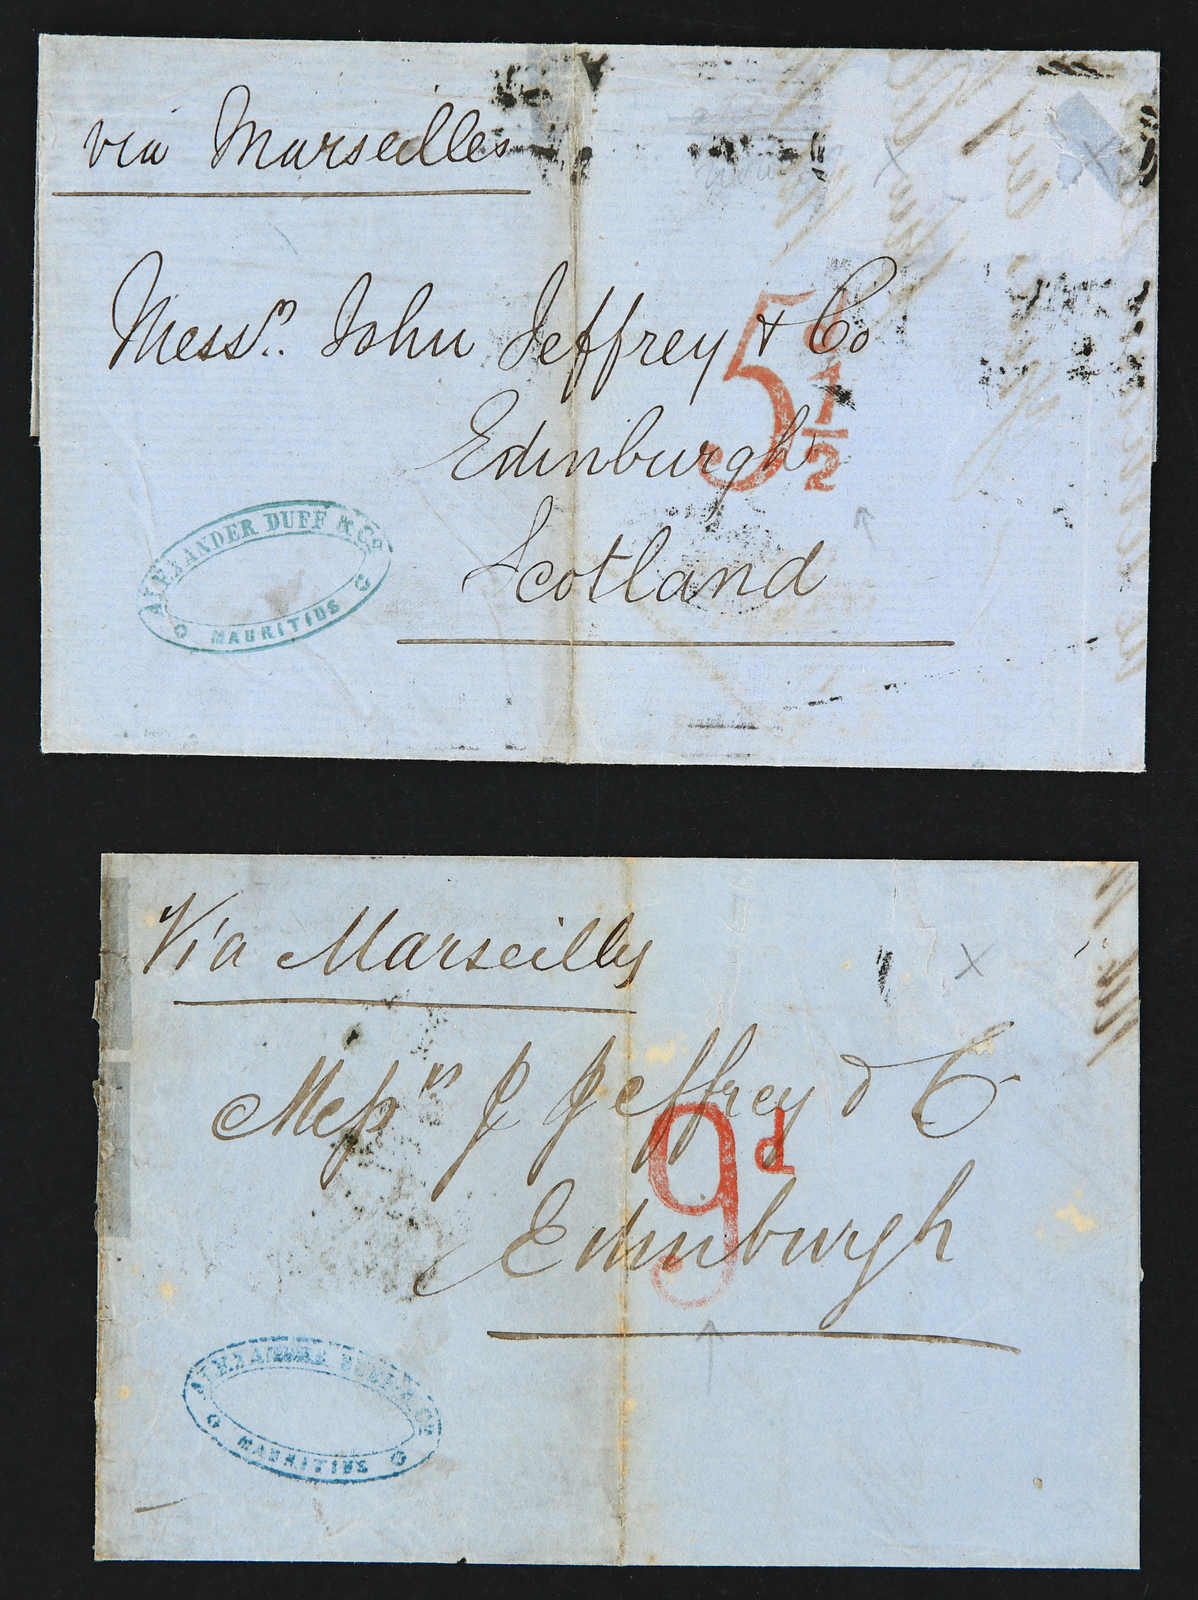 via Marseilles
Messrs. John Jeffrey & Co
5½
Edinburgh
Scotland
ALEXANDER DUFF & Co.
MAURITIUS
Via Marseilles
Messrs J Jeffrey & Co
9d
Edinburgh
ALEXANDER DUFF & Co.
MAURITIUS